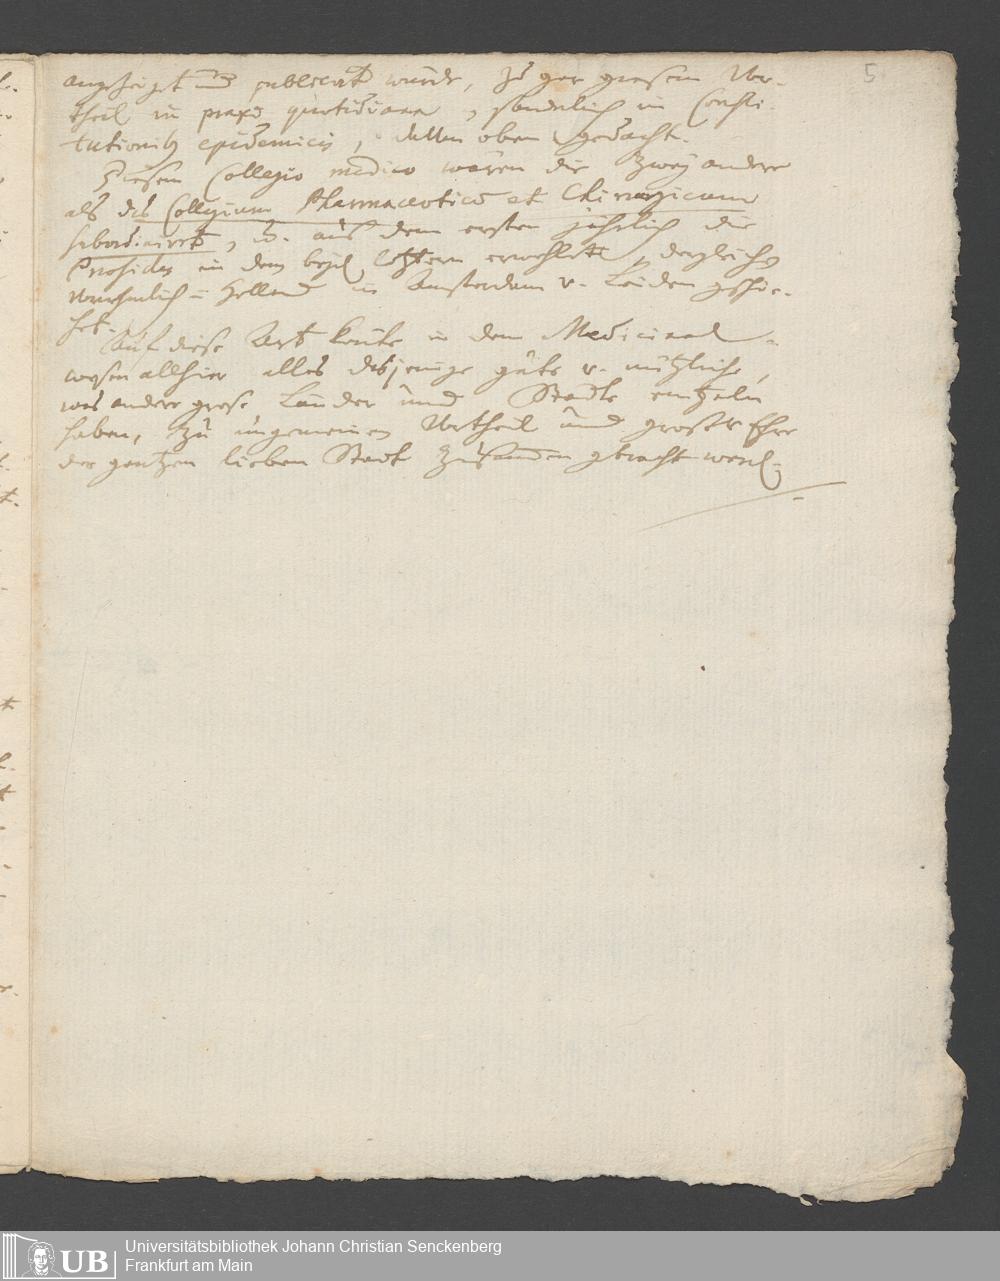 5
angezeigt und publicirt würde, zu gar grosem Vor-
theil in praxi quotidiana, sonderlich in Consti-
tutionib9 epidemicis, deren oben gedacht.
Diesem Collegio medico wären die zwey andere
als das Collegium Pharmaceuticū et Chirurgicum
subordinirt, u. aus dem ersten jährlich die
Praesides in dem letztern erwehlt, dergleichen
vornehmlich in Holland in Amsterdam u. Leiden geschie-
het.
Auf diese Art könte in dem Medicinal-
wesen allhier alles dasjenige gute u. nützliche,
was andere grose Länder und Städte eintzeln
haben, zu ungemeinen Vortheil und groser Ehre
der gantzen lieben Stadt zusammen gebracht werd.
UB
Universitätsbibliothek Johann Christian Senckenberg
Frankfurt am Main